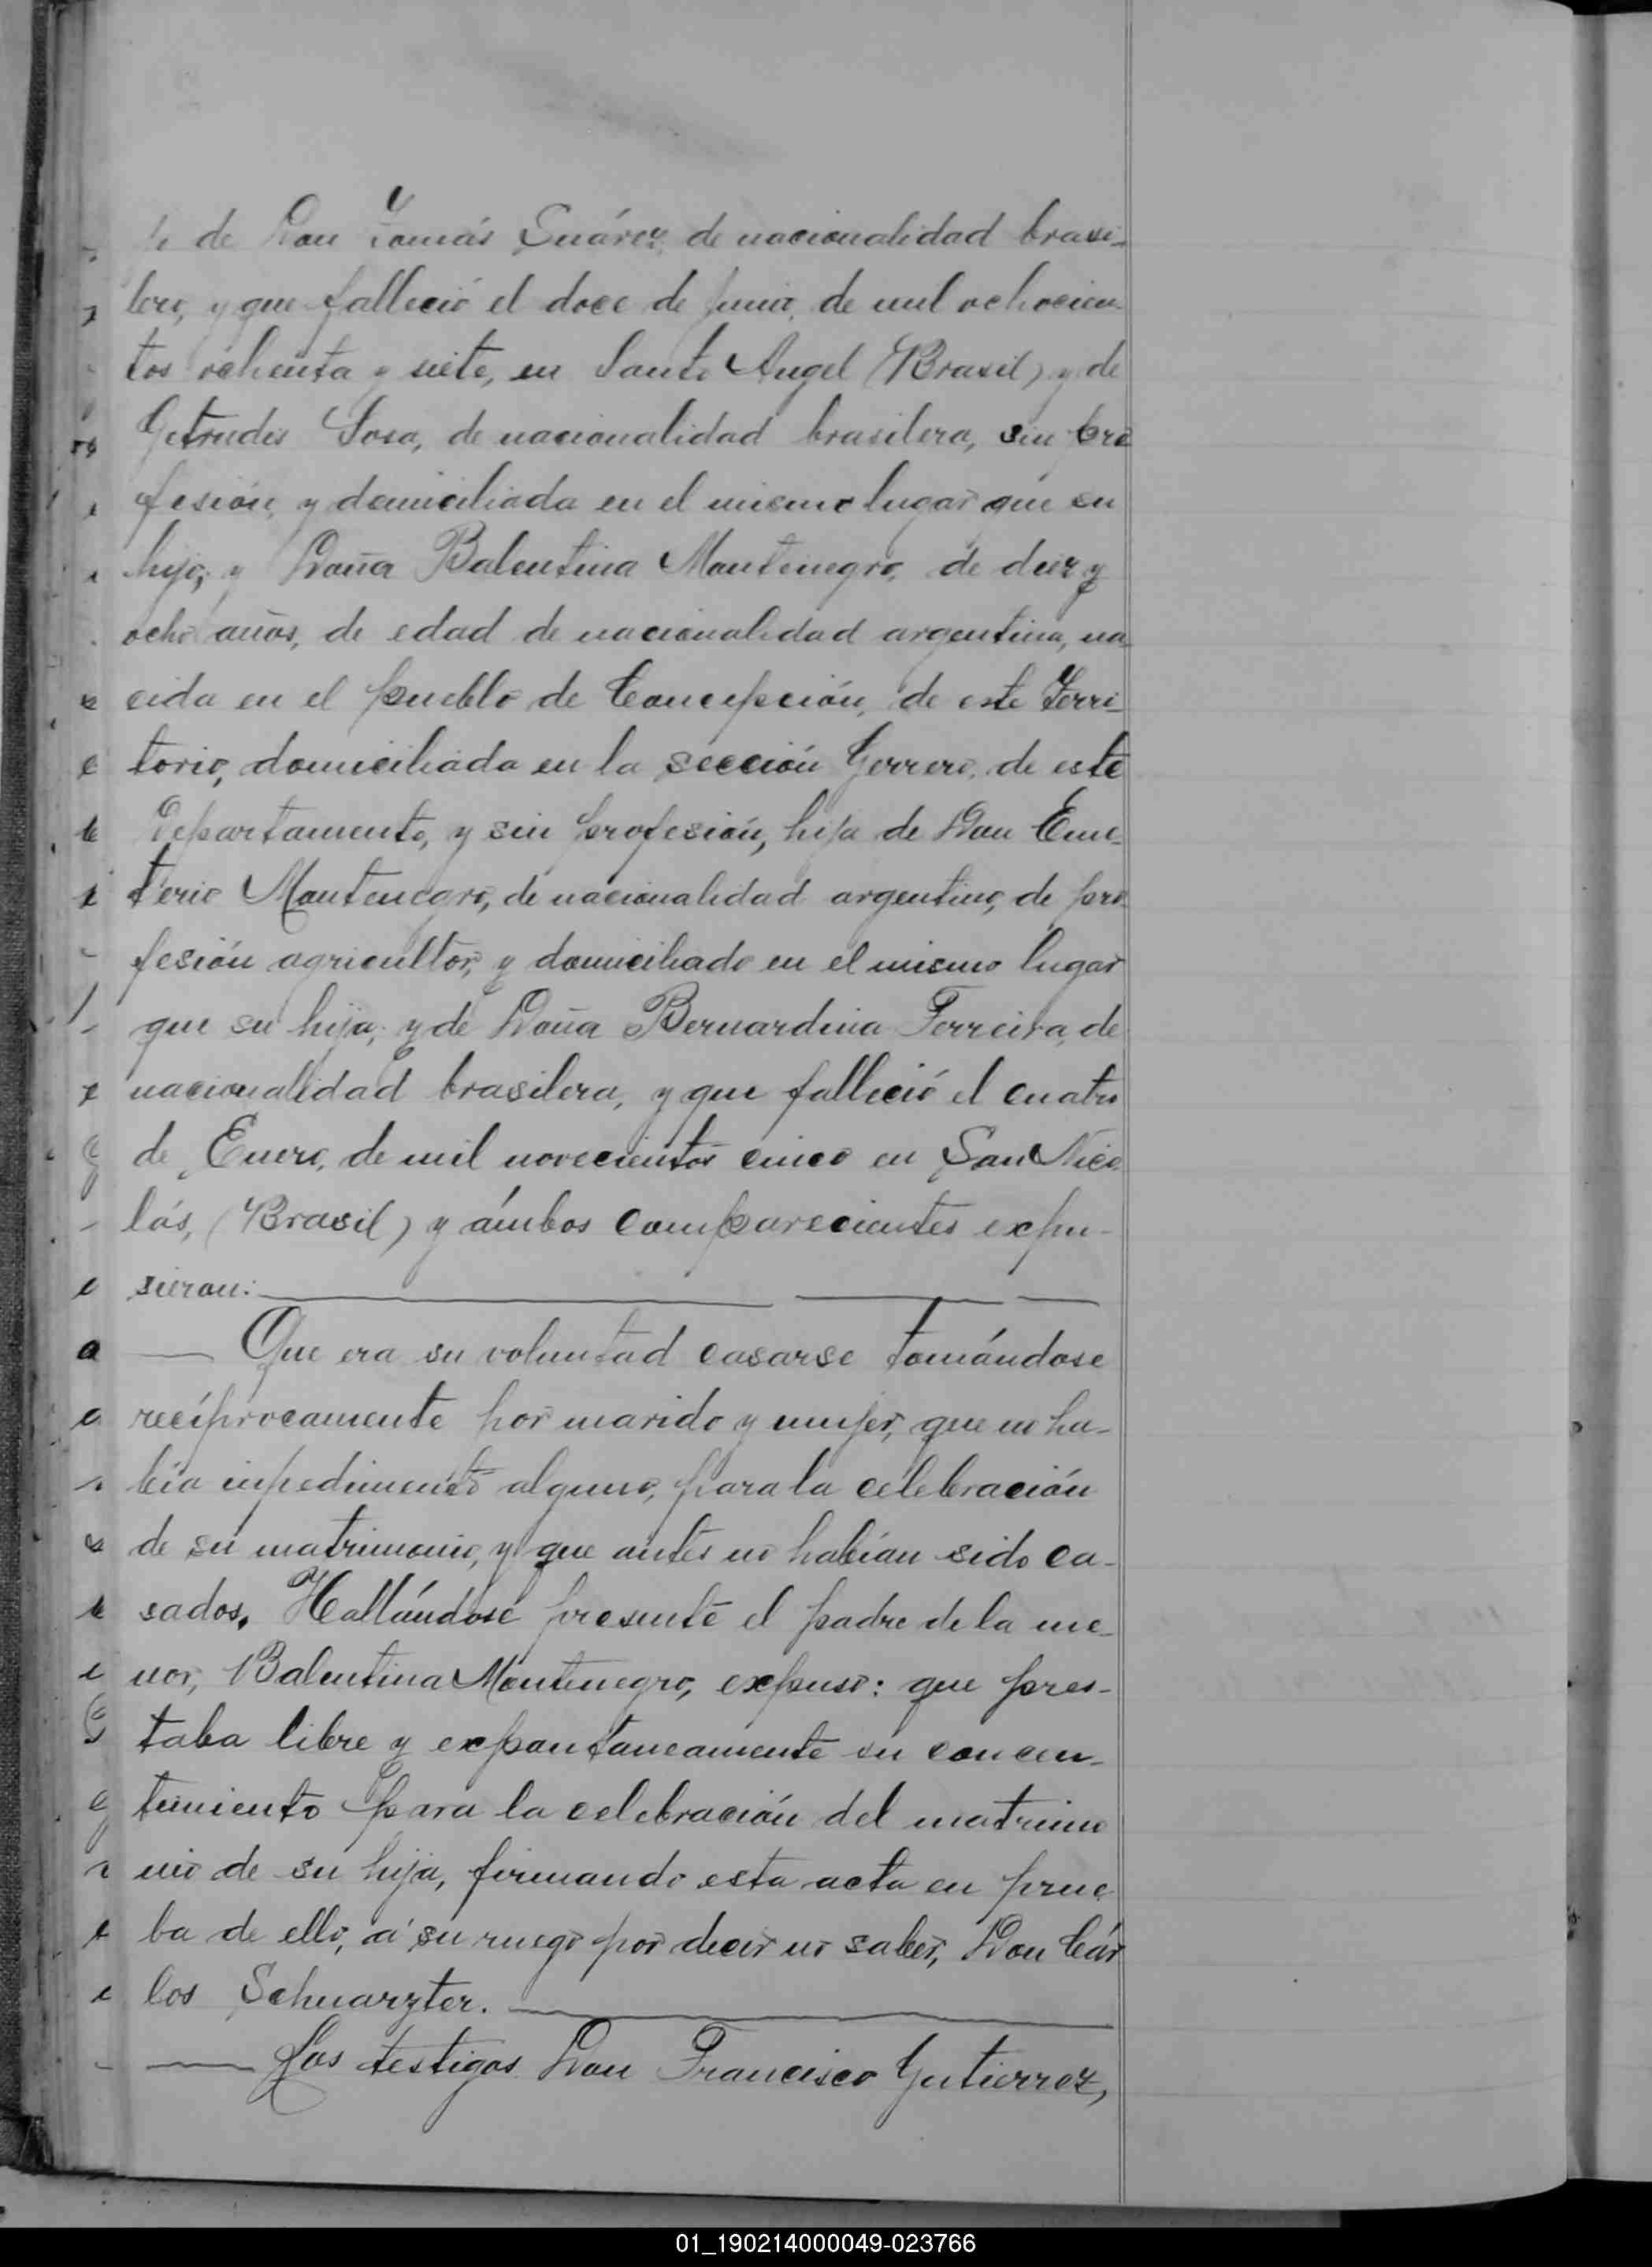 de Don Tomás Suárez, de nacionalidad brasi-
lero, y que falleció el doce de junio, de mil ochocien-
tos ochenta y siete, en Santo Angel (Brasil) y de
Getrudis Sosa, de nacionalidad brasilera, sin pro
fesión, y domiciliada en el mismo lugar que su
hijo; y Doña Balentina Montenegro, de diez y
ocho años, de edad de nacionalidad argentina, na-
cida en el pueblo de Concepción, de este Terri-
torio, domiciliada en la sección Gerrero, de este
Departamento, y sin profesión, hija de Don Eme-
terio Montenegro, de nacionalidad argentino, de pro-
fesión agricultor, y domiciliado en el mismo lugar
que su hija; y de Doña Bernardina Ferreira, de
nacionalidad brasilera, y que falleció el cuatro
de Enero, de mil novecientos cinco en San Nico
lás, (Brasil) y ámbos comparecientes expu-
sieron:
Que era su voluntad casarse tomándose
recíprocamente por marido y mujer, que no ha-
bía inpedimento alguno, para la celebración
de su matrimonio, y que antes no habían sido ca-
sados. Hallándose presente el padre de la me-
nor, Balentina Montenegro, expuso: que pres-
taba libre y expontaneamente su concen-
timiento para la celebración del matrimo
nio de su hija, firmando esta acta en prue
ba de ello, á su ruego por decir no saber, Don Cár
los Schuarzter.
Los testigos Don Francisco Gutierrez,
01_190214000049-023766